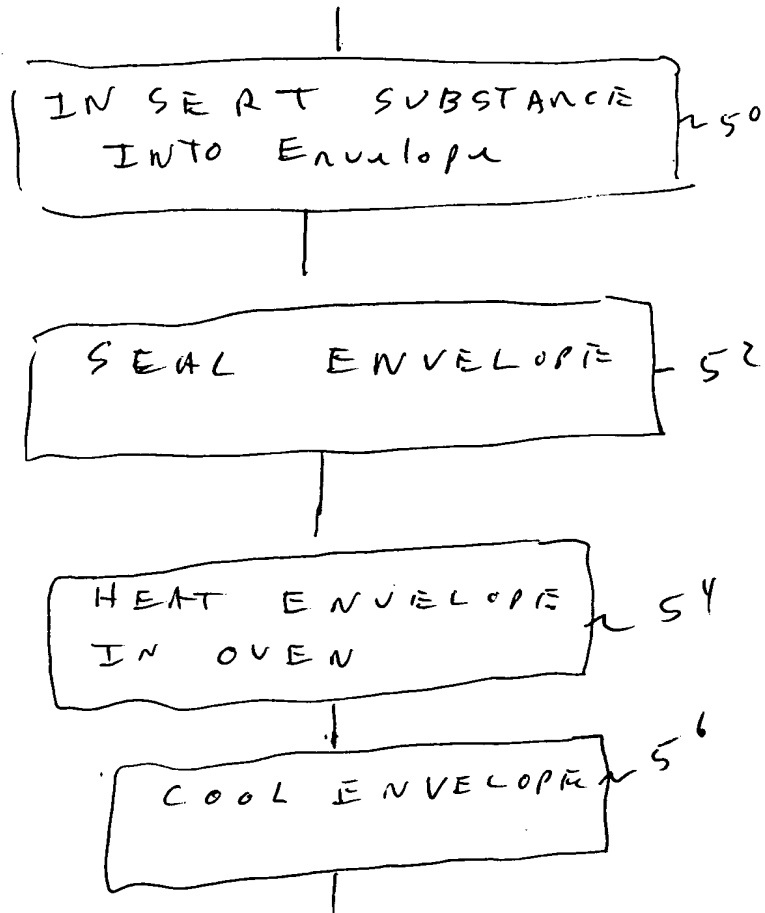 INSERT SUBSTANCE
INTO Envelope
50
SEAL ENVELOPE
52
HEAT ENVELOPE
54
IN OVEN
COOL ENVELOPE
56